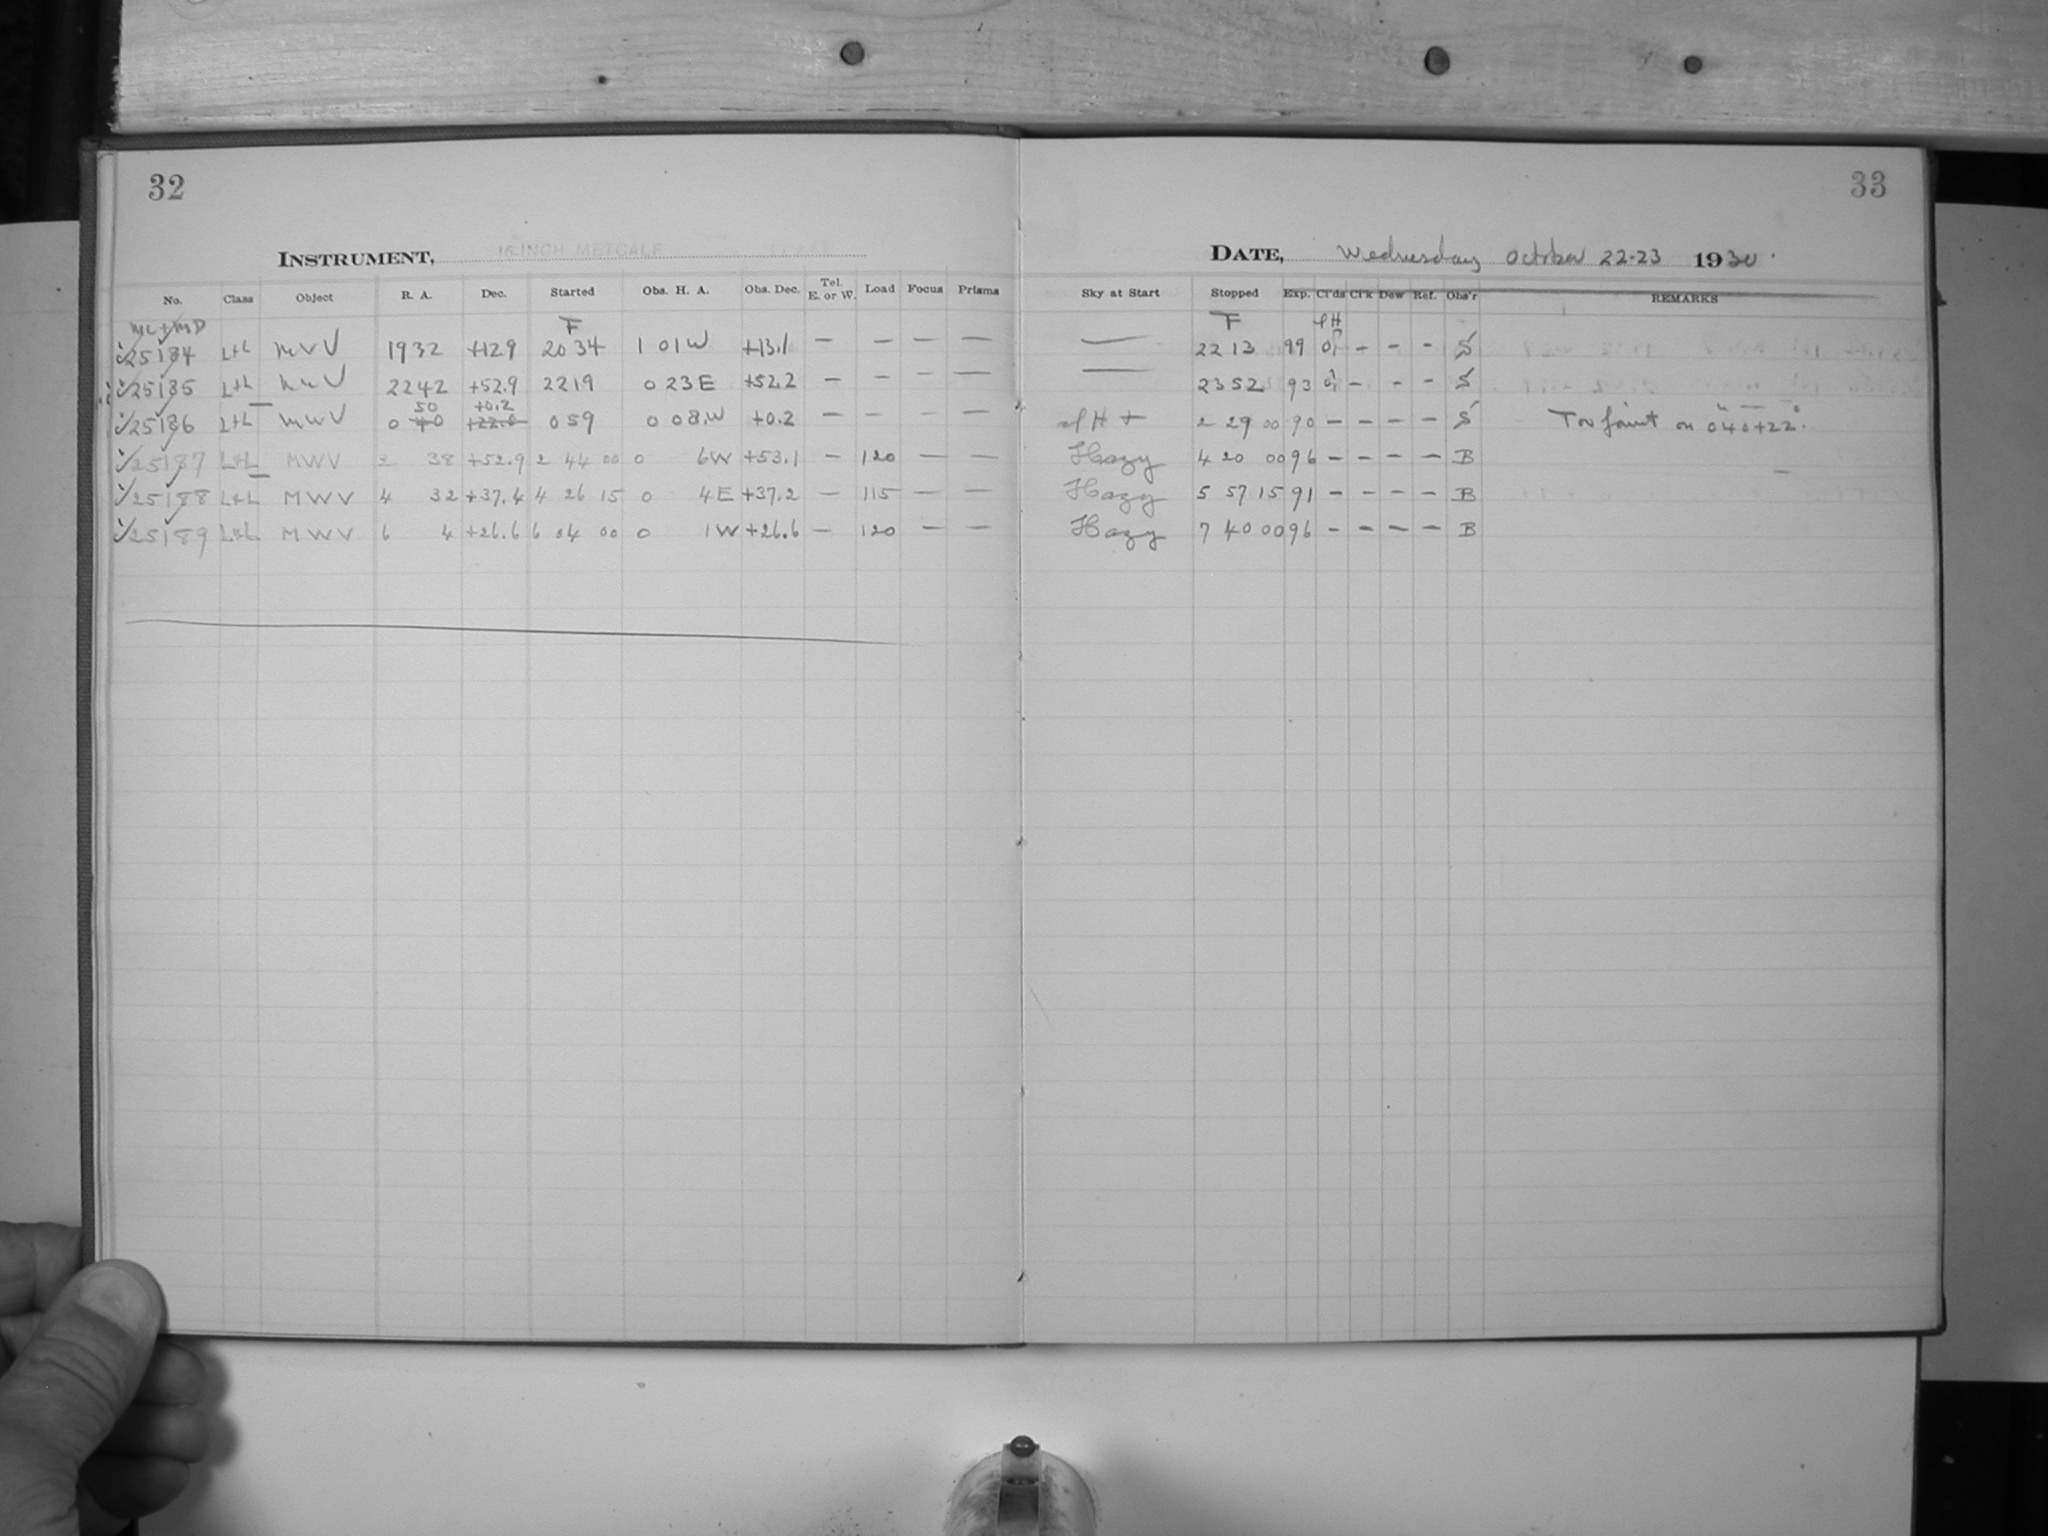 32
33
INSTRUMENT, 16 INCH METCALF
DATE, Wednesday October 22-23 1930.
No. Class Object R. A. Dec. Started Obs. H. A. Obs. Dec. Tel. E. or W. Load Focus Prisms Sky at Start Stopped Exp. Cl'ds Cl'k Dew Ref. Obs'r REMARKS
MC+MD F F
25184 L+L MWV 1932 +12.9 20 34 1 01 W +13.1 — — — — — 22 13 99 - - - S
25185 L+L MWV 2242 +52.9 22 19 0 23 E +52.2 — — — — — 23 52 93 - - - S
50 +0.2
25186 L+L MWV 0 40 +22.0 0 59 0 08 W +0.2 — — — — 2 29 00 90 - - - - S Too faint on 040+22°.
25187 L+L MWV 2 38 +52.9 2 44 00 0 6W +53.1 — 120 — — Hazy 4 20 00 96 - - - - B
25188 L+L MWV 4 32 +37.4 4 26 15 0 4E +37.2 — 115 — — Hazy 5 57 15 91 - - - - B
25189 L+L MWV 6 4 +26.6 6 04 00 0 1W +26.6 — 120 — — Hazy 7 40 00 96 - - - - B